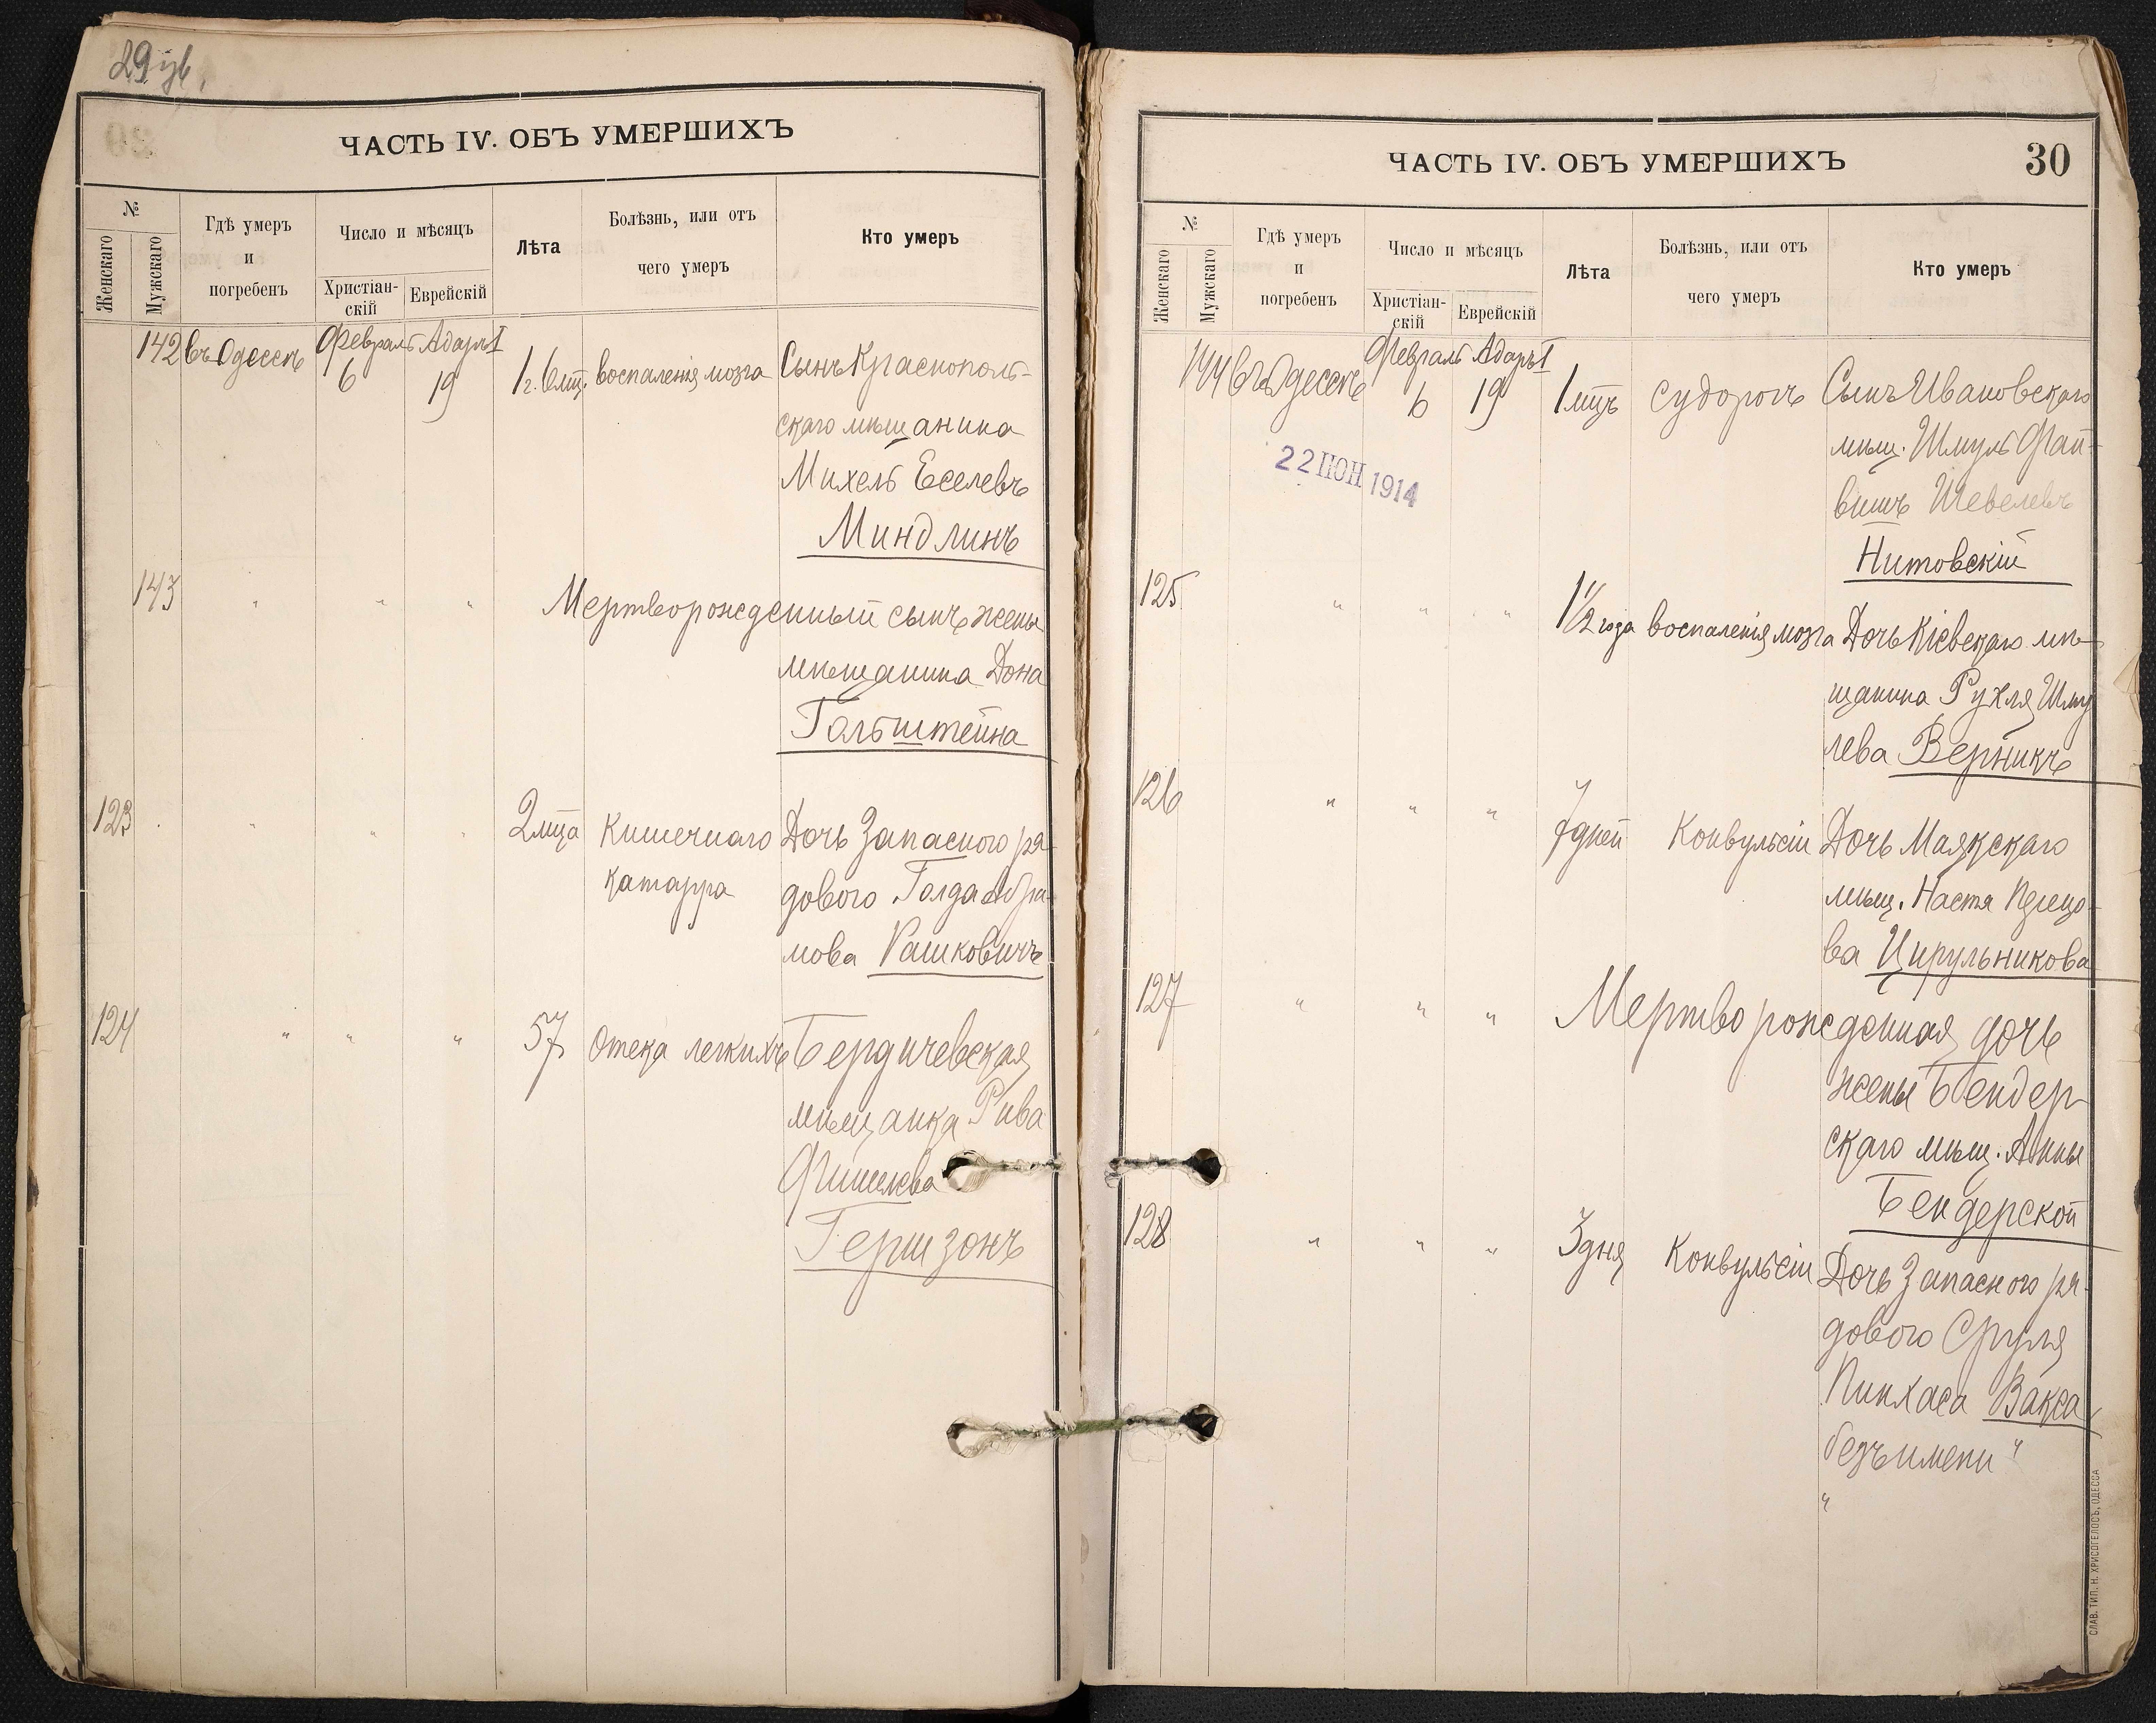 29 об.
ЧАСТЬ IV. ОБЪ УМЕРШИХЪ
№
Женскаго
Мужскаго
Гдѣ умеръ
и
погребенъ
Число и мѣсяцъ
Христіан-
скій
Еврейскій
Лѣта
Болѣзнь, или отъ
чего умеръ
Кто умеръ
142 въ Одессѣ Февраль Адаръ I
6 19 1 г. 6 мц. воспаленія мозга Сынъ Краснополь-
скаго мѣщанина
Михель Еселевъ
Миндлинъ
143 " " " Мертворожденный сынъ жены
мѣщанина Дона
Гольштейна
123 " " " 2 мца Кишечнаго Дочь Запаснаго ря-
катарра дового Голда Абра-
мова Рашковичъ
124 " " " 57 Отека легкихъ Бердичевская
мѣщанка Рива
Фишелева
Гершзонъ
ЧАСТЬ IV. ОБЪ УМЕРШИХЪ
30
№
Женскаго
Мужскаго
Гдѣ умеръ
и
погребенъ
Число и мѣсяцъ
Христіан-
скій
Еврейскій
Лѣта
Болѣзнь, или отъ
чего умеръ
Кто умеръ
144 въ Одессѣ Февраль Адаръ I
6 19 1 мцъ Судорогъ Сынъ Ивановскаго
22 ІЮН 1914
мѣщ. Шмуль Фай-
вишъ Шевелевъ
Нитовскій
125 " " " 1 1/2 года воспаленія мозга Дочь Кіевскаго мѣ-
щанина Рухля Шму
лева Верникъ
126 " " " 7 дней Конвульсіи Дочь Маякскаго
мѣщ. Настя
ва Цирульникова
127 " " " Мертворожденная дочь
жены Бендер-
скаго мѣщ. Анны
Бендерской
128 " " " 3 дня Конвульсіи Дочь Запаснаго ря-
дового Сруля
Пинхаса Вакса
безъ имени "
"
СЛАВ. ТИП. Н. ХРИСОГЕЛОСЪ, ОДЕССА